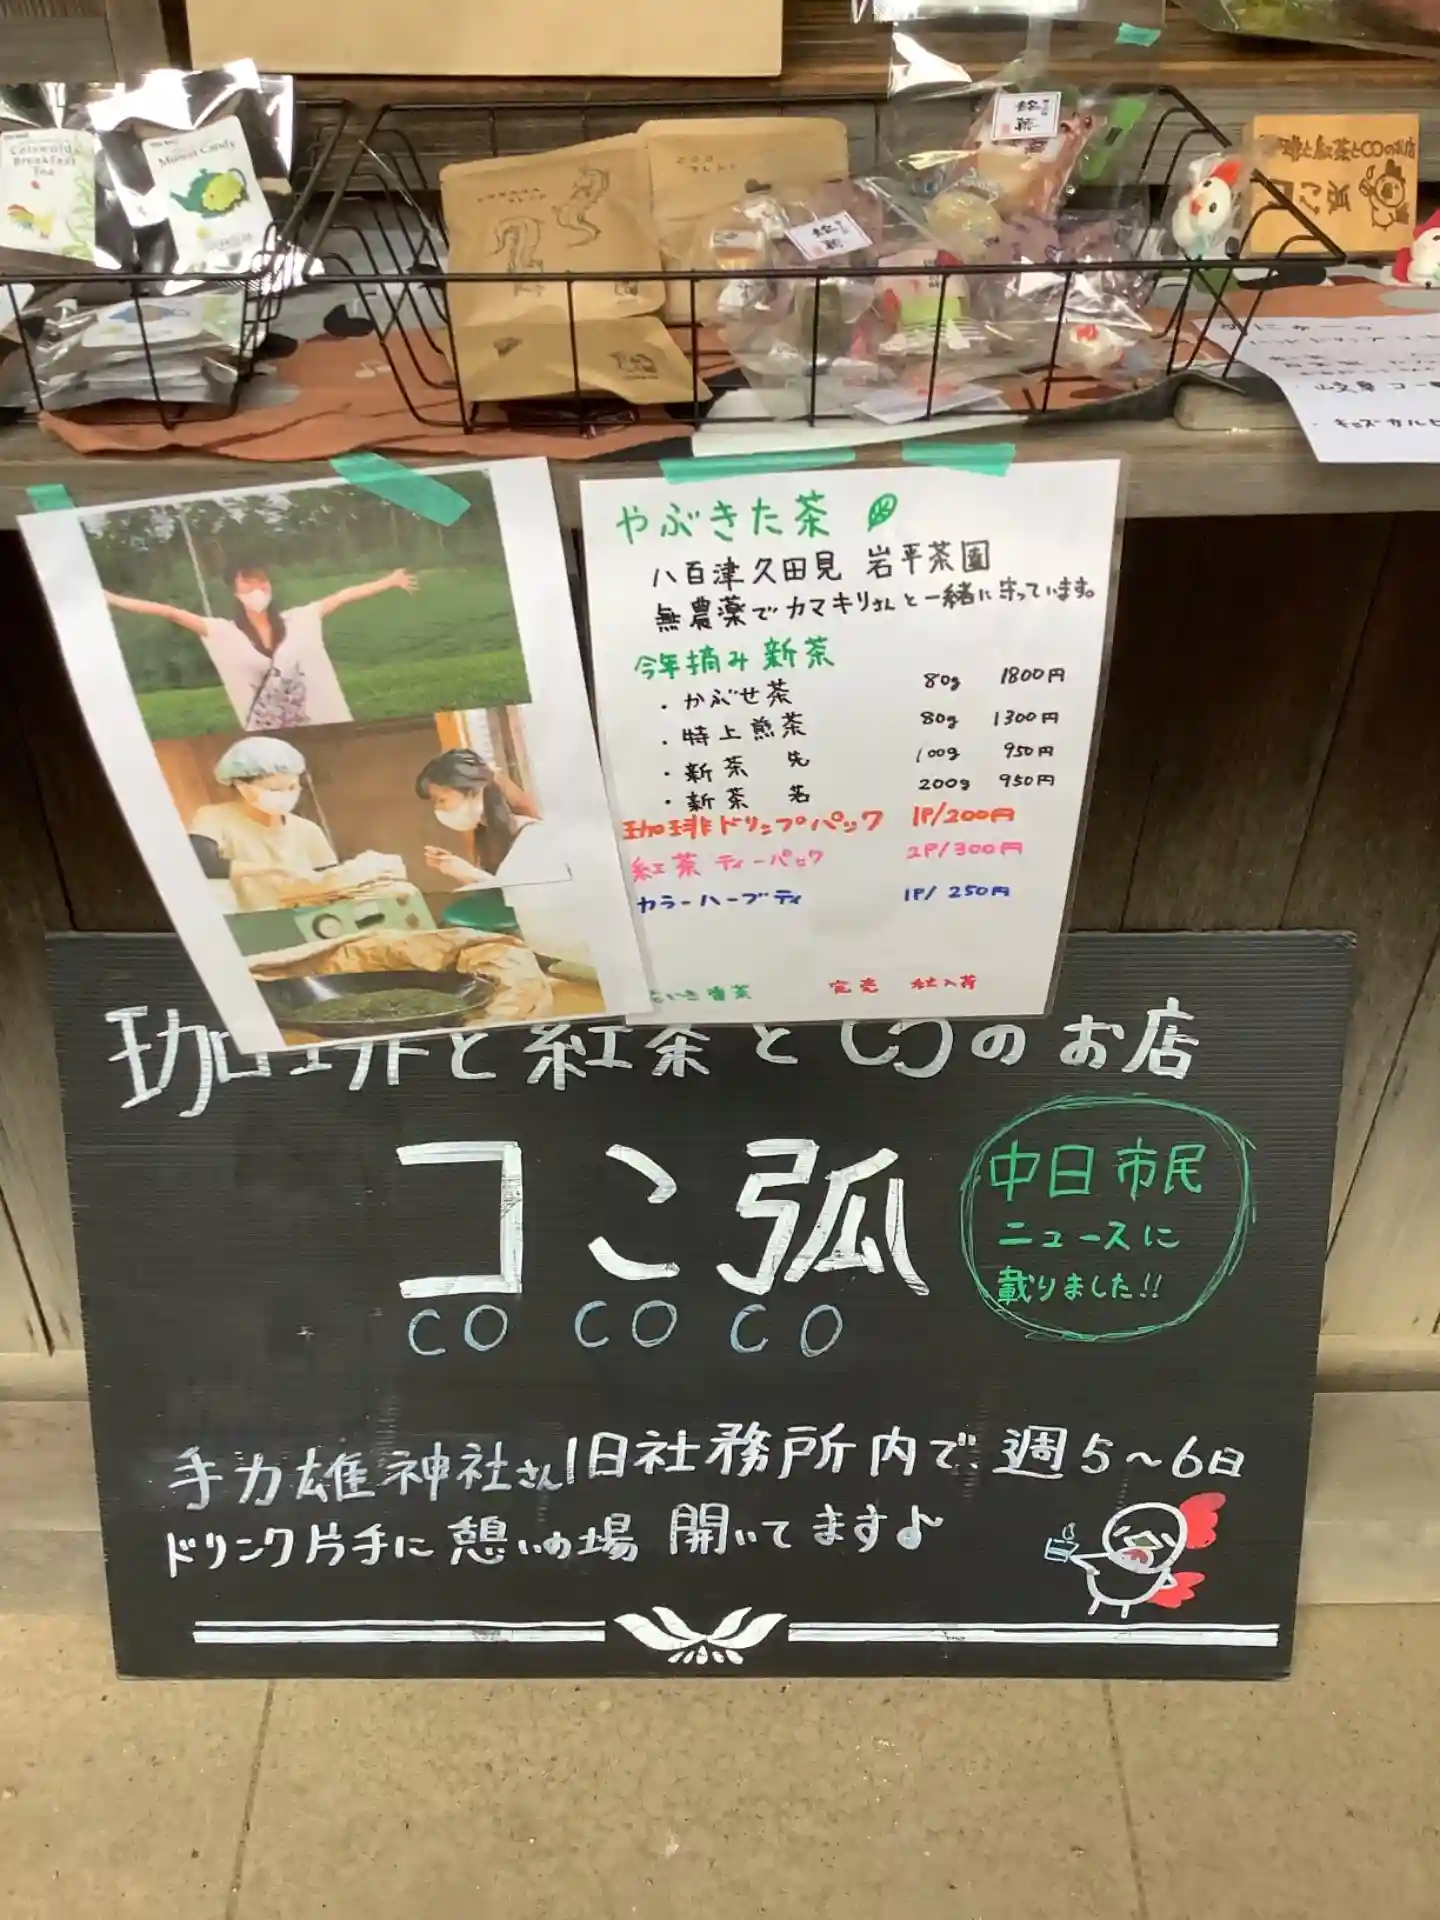 Cotswold
Breakfast
Tea
Muscat Candy
珈琲と紅茶と〇〇のお店
やぶきた茶
八百津久田見 岩平茶園
無農薬でカマキリさんと一緒に守っています。
今年摘み新茶
・かぶせ茶 80g 1800円
・特上煎茶 80g 1300円
・新茶 先 100g 950円
・新茶 茗 200g 950円
珈琲ドリップパック 1P/200円
紅茶 ティーパック 2P/300円
カラーハーブティ 1P/250円
番茶 完売
珈琲と紅茶と〇〇のお店
コこ弧
CO CO CO
中日市民
ニュースに
載りました!!
手力雄神社さん旧社務所内で、週5〜6日
ドリンク片手に憩いの場 開いてます♪